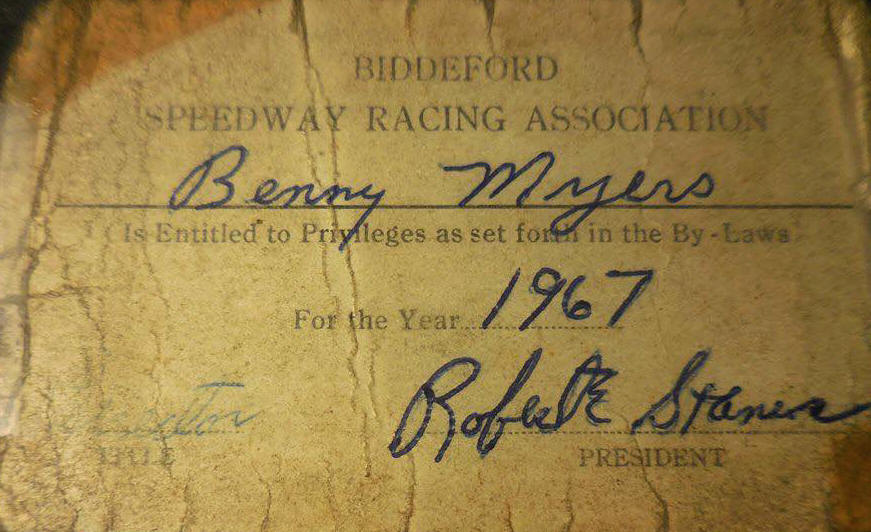 BIDDEFORD
SPEEDWAY RACING ASSOCIATION
Benny Myers
Is Entitled to Privileges as set forth in the By-Laws
For the Year 1967
Robert E
TITLE PRESIDENT